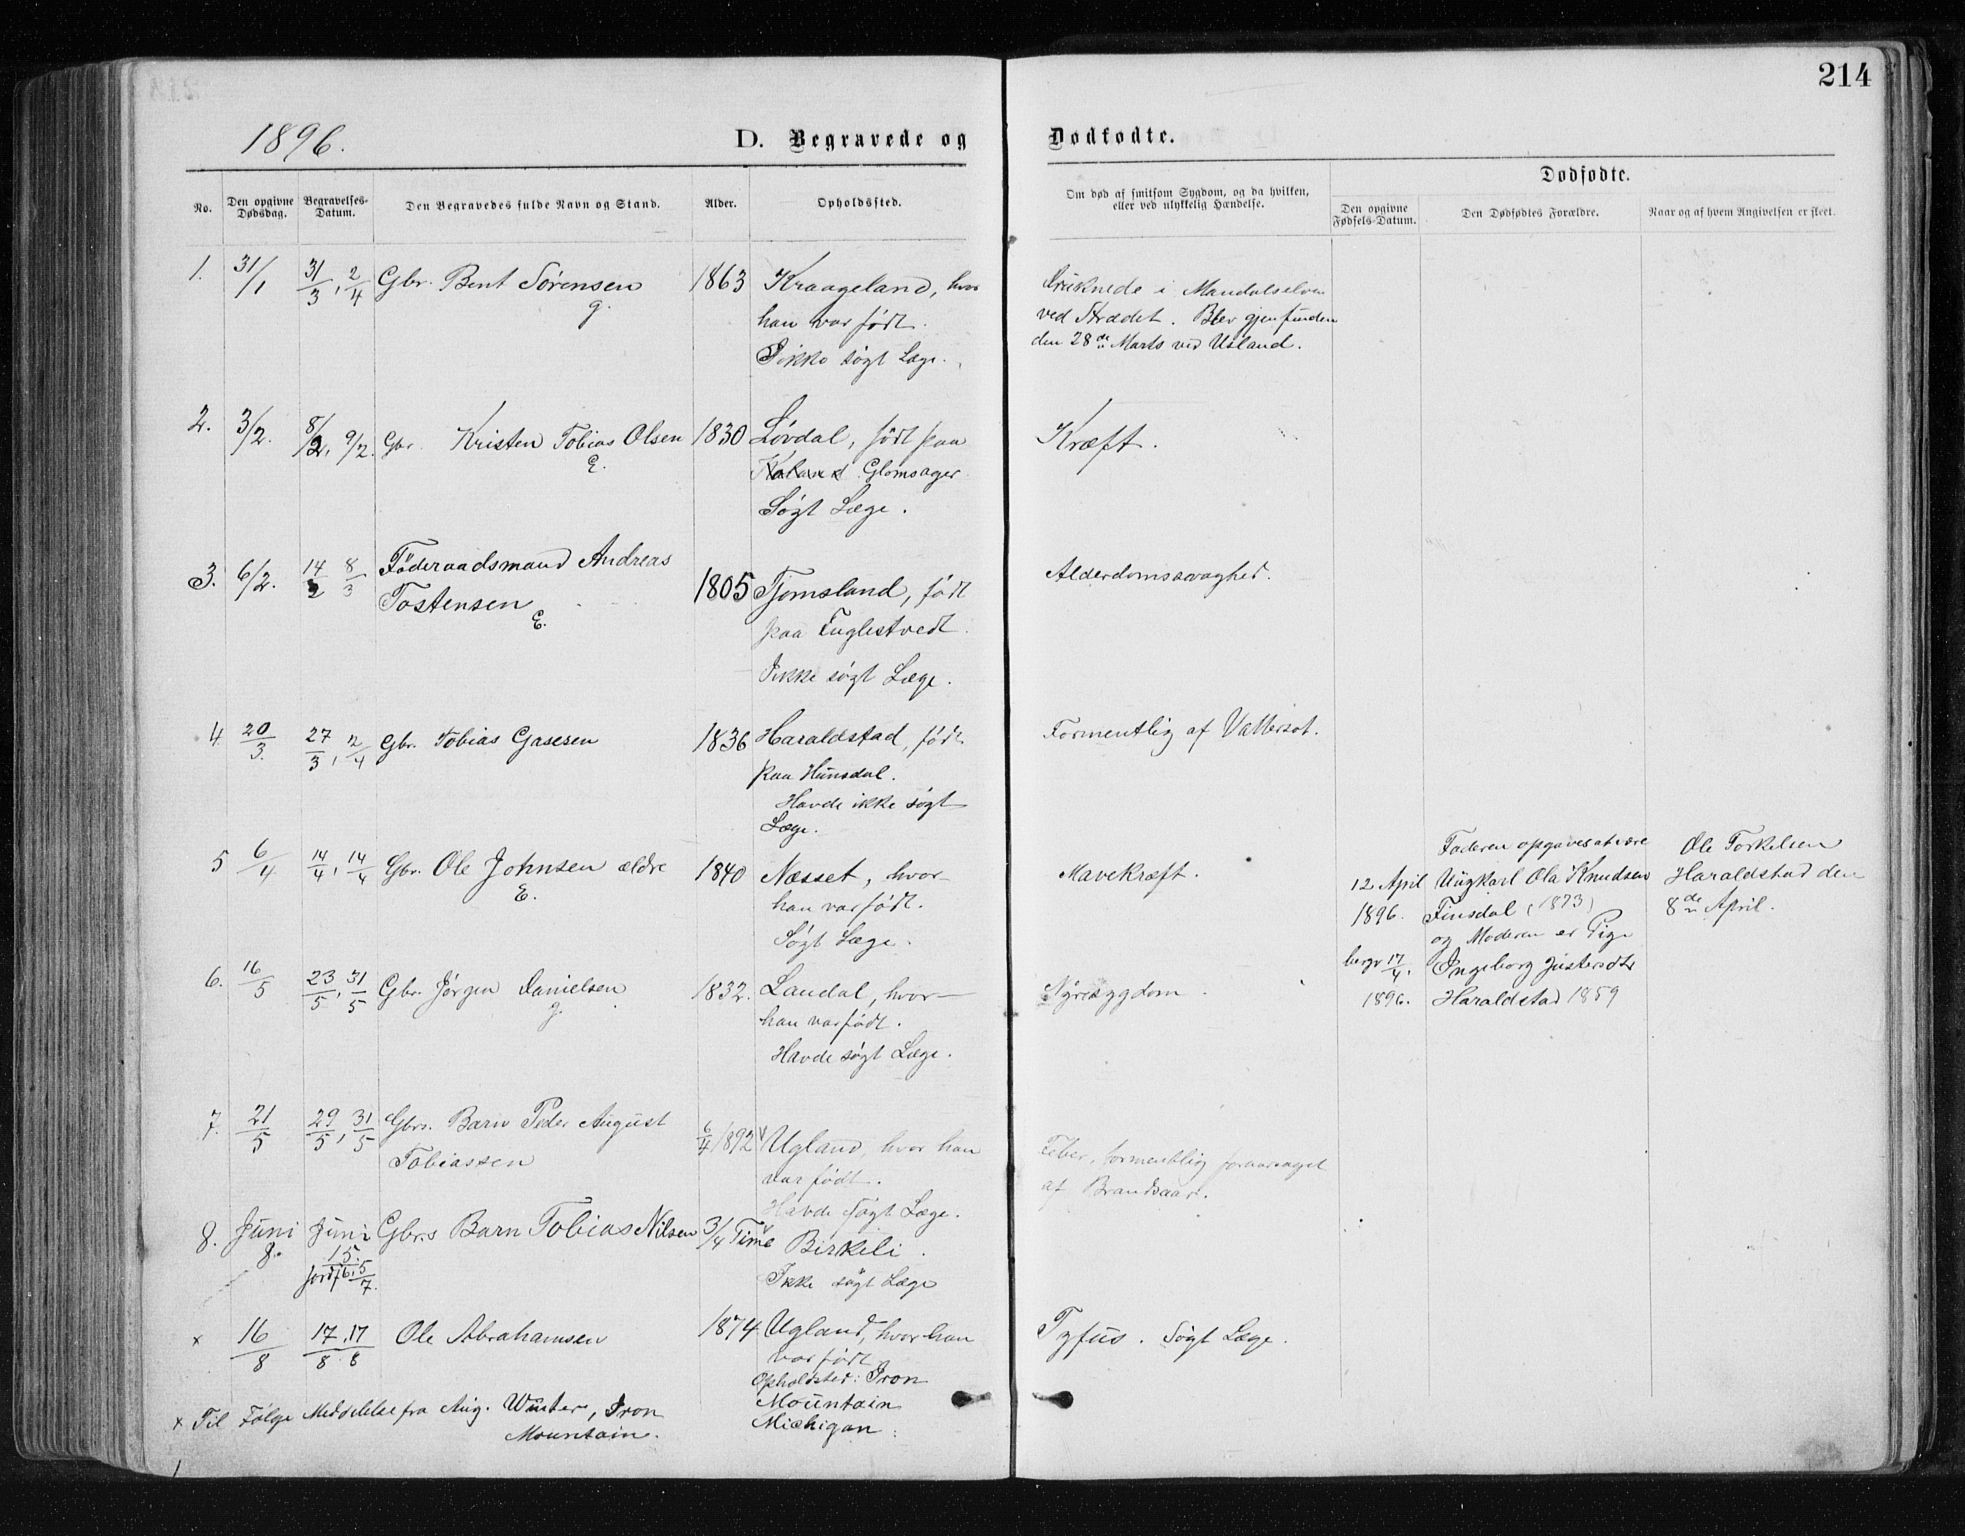 214
1896.
D. Begravede og Dødfødte.
No.
Den opgivne Dødsdag.
Begravelses-Datum.
Den Begravedes fulde Navn og Stand.
Alder.
Opholdssted.
Om død af smitsom Sygdom, og da hvilken,
eller ved ulykkelig Hændelse.
Dødfødte.
Den opgivne Fødsels-Datum.
Den Dødfødtes Forældre.
Naar og af hvem Angivelsen er skeet.
1. 31/1 31/3, 2/4 Gbr. Bent Sørensen 1863 Kraageland, hvor
g.
han var født.
Ikke søgt Læge.
Druknede i Mandalselven
ved Strædet. Blev gjenfunden
den 28de Marts ved Usland.
2. 3/2. 8/2, 9/2. Gbr. Kristen Tobias Olsen 1830 Løvdal, født paa
E.
Kaland Glomsager
Søgt Læge.
Kræft.
3. 6/2. 14/2 8/3 Føderaadsmand Andreas
Tostensen 1805 Tjomsland, født
E.
paa Fuglestvedt.
Ikke søgt Læge.
Alderdomssvaghed.
4 20/3. 27/3, 2/4 Gbr. Tobias Gasesen 1836 Haraldstad, født
paa Hunsdal.
Havde ikke søgt
Læge.
Formentlig af Vattersot.
5 6/4 14/4, 14/4 Gbr. Ole Johnsen ældre 1840 Næsset, hvor
E.
han var født.
Søgt Læge.
Mavekræft.
12 April
1896.
begr 17/4.
1896.
Faderen opgaves at være
Ungkarl Ola Knudsen
Finsdal (1873)
og Moderen er Pige
Ingeborg Justersdtr
Haraldstad 1859
Ole Torkelsen
Haraldstad den
8de April.
6. 16/5 23/5, 31/5 Gbr. Jørgen Danielsen 1832. Laudal, hvor
g.
han var født.
Havde søgt Læge.
Nyresygdom
7. 21/5 29/5, 31/5 Gbrs. Barn Peder August
Tobiassen 6/4 1892 Ugland, hvor han
var født.
Havde søgt Læge.
Feber, formentlig foraarsaget
af Brandsaar.
8. Juni 8. Juni 15. Gbrs Barn Tobias Nilsen 3/4 Time Birkeli.
jordf. 5/7.
Ikke søgt Læge
x 16/8 17/8. 17/8 Ole Abrahamsen 1874 Ugland, hvor han
var født
Opholdsted: Iron
Mountain
Michigan.
Tyfus. Søgt Læge.
x Til Følge Meddelelse fra Aug. Wüster, Iron
Mountain.